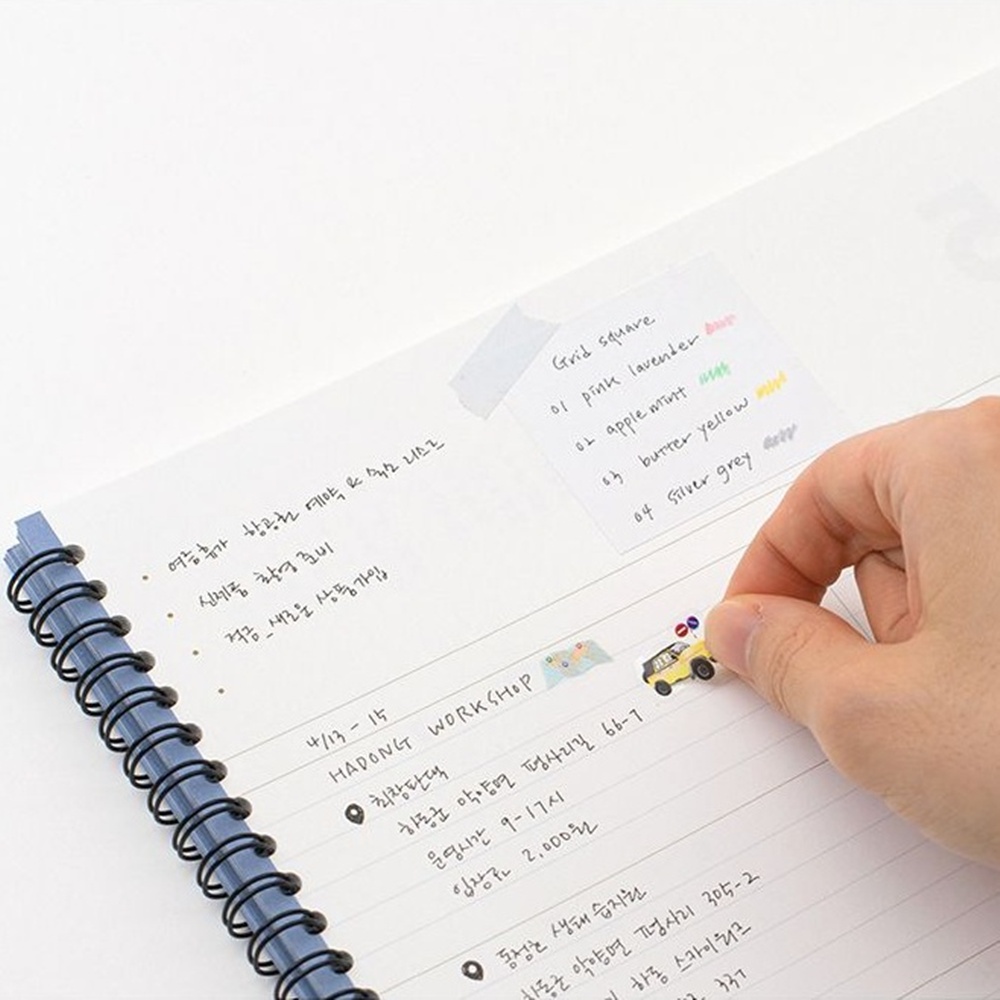 여름휴가 항공권 예약 & 숙소 리스트
신제품 촬영 준비
적금_새로운 상품가입
Grid square
01 pink lavender
02 apple mint
03 butter yellow
04 silver grey
4/13 - 15
HADONG WORKSHOP
최참판댁
하동군 악양면 평사리길 66-7
운영시간 9-17시
입장료 2,000원
동정호 생태습지원
하동군 악양면 평사리 305-2
하동 스카이워크
337